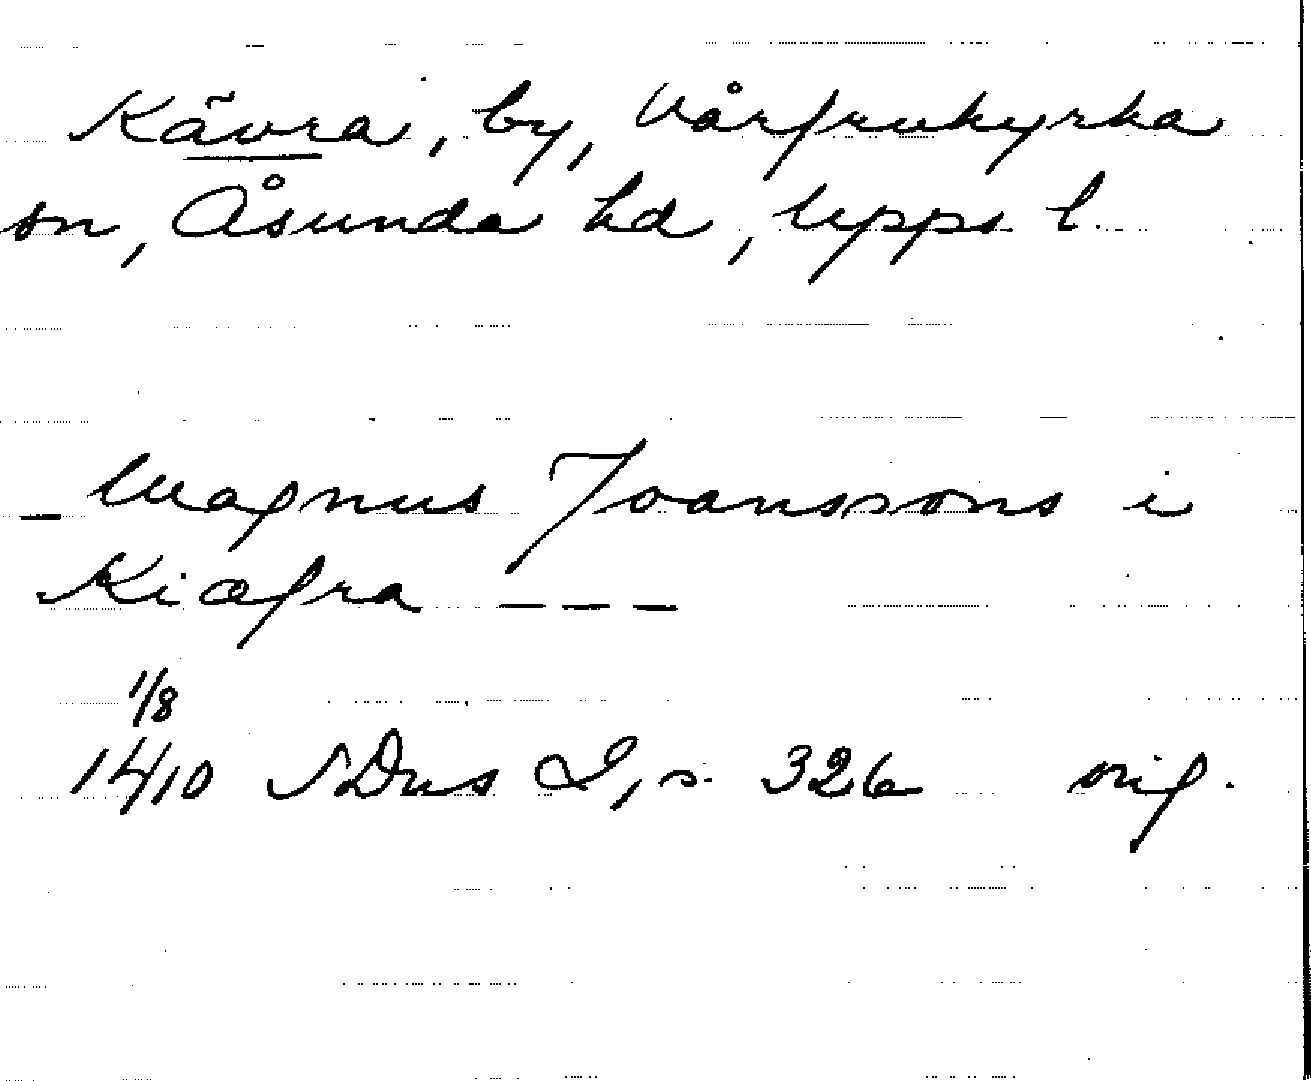 Kävra, by, Vårfrukyrka
sn, Åsunda hd, Upps l.
_ Magnus Joanssons i
Kiæfra _ _ _
1/8
14/10 SDns I, s. 326 orig.